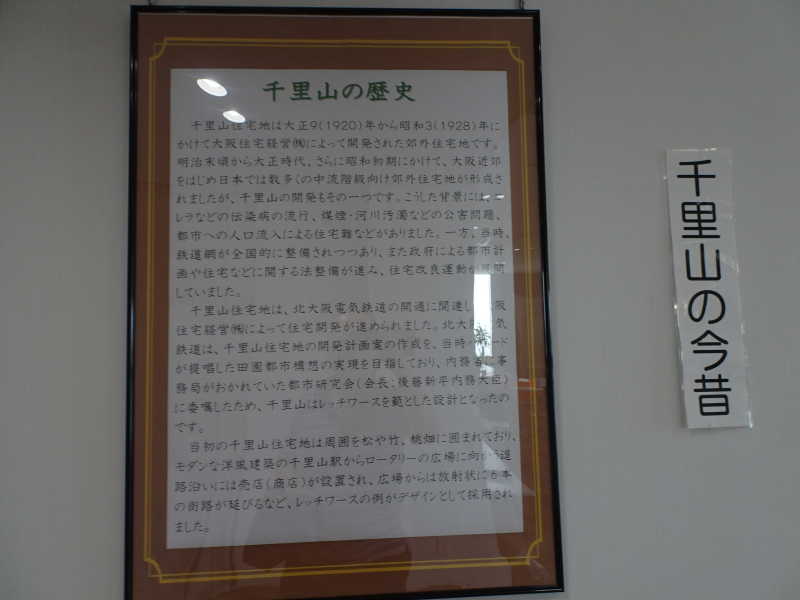 千里山の歴史
千里山住宅地は大正9(1920)年から昭和3(1928)年に
かけて大阪住宅経営㈱によって開発された郊外住宅地です。
明治末頃から大正時代、さらに昭和初期にかけて、大阪近郊
をはじめ日本では数多くの中流階級向け郊外住宅地が形成さ
れましたが、千里山の開発もその一つです。こうした背景には、コ
レラなどの伝染病の流行、煤煙・河川汚濁などの公害問題、
都市への人口流入による住宅難などがありました。一方、当時、
鉄道網が全国的に整備されつつあり、また政府による都市計
画や住宅などに関する法整備が進み、住宅改良運動が展開
していました。
千里山住宅地は、北大阪電気鉄道の開通に関連し大阪
住宅経営㈱によって住宅開発が進められました。北大阪電気
鉄道は、千里山住宅地の開発計画案の作成を、当時ハワード
が提唱した田園都市構想の実現を目指しており、内務省に事
務局がおかれていた都市研究会(会長:後藤新平内務大臣)
に委嘱したため、千里山はレッチワースを範とした設計となったの
です。
当初の千里山住宅地は周囲を松や竹、桃畑に囲まれており、
モダンな洋風建築の千里山駅からロータリーの広場に向かう道
路沿いには売店(商店)が設置され、広場からは放射状に6本
の街路が延びるなど、レッチワースの例がデザインとして採用され
ました。
千里山の今昔